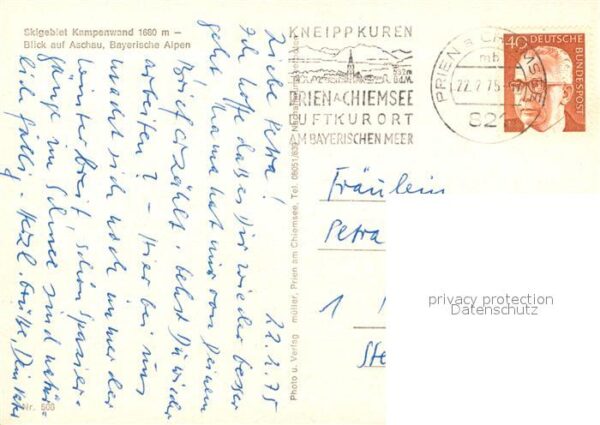 Skigebiet Kampenwand 1680 m –
Blick auf Aschau, Bayerische Alpen
Liebe Petra! 22.2.75
Ich hoffe daß es Dir wieder besser
geht. Mama hat mir von Deinem
Brief erzählt. Gehst Du wieder
arbeiten? – Hier bei uns
macht sich noch immer der
Winter breit, schön Spazier-
gänge im Schnee sind
Herzl. Grüße, Dein
Nr. 508
Photo u. Verlag müller, Prien am Chiemsee, Tel. 08051/
KNEIPPKUREN
PRIEN A CHIEMSEE
LUFTKURORT
AM BAYERISCHEN MEER
PRIEN a CHIEMSEE
mb
22.2.75
821
40 DEUTSCHE
BUNDESPOST
Fräulein
Petra
1
privacy protection
Datenschutz